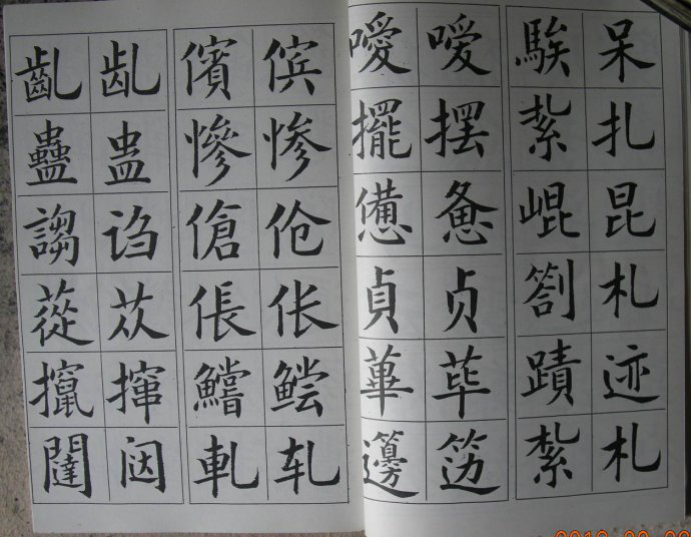 齔 龀 儐 傧 噯 嗳 騃 呆
蠱 蛊 慘 惨 擺 摆 紮 扎
謅 诌 傖 伧 憊 惫 崐 昆
蓯 苁 倀 伥 貞 贞 劄 札
攛 撺 鱨 鲿 蓽 荜 蹟 迹
闥 闼 軋 轧 籩 笾 紮 札